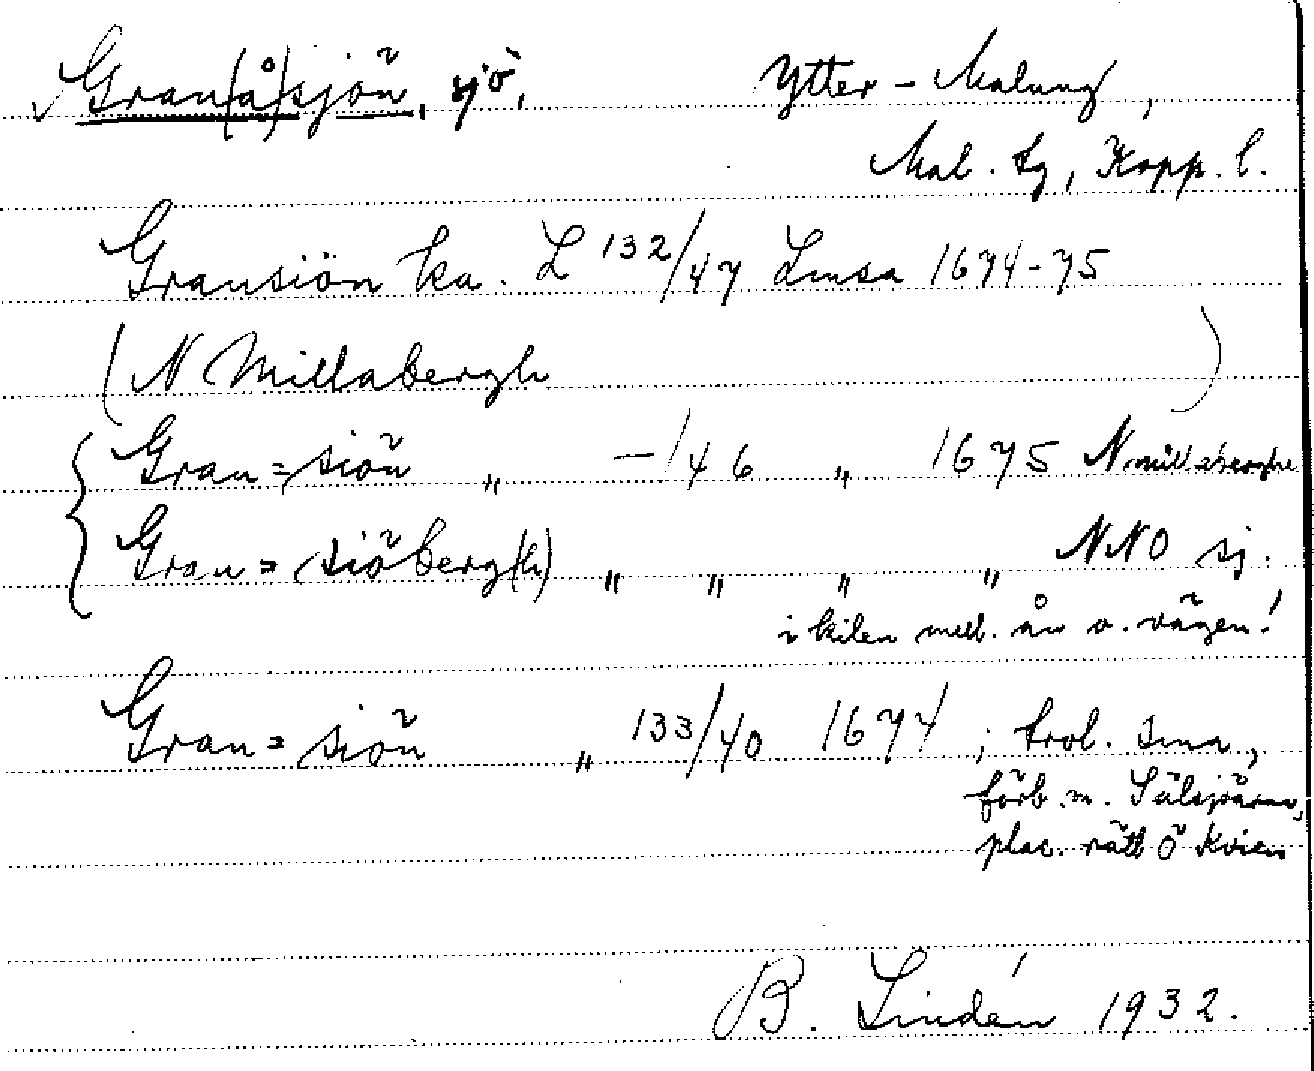 Gran(å)sjön, sjö. Ytter-Malung,
Mal. tg, Kopp. l.
Gransiön ka. L 132/47 Lmsa 1674-75
(N Millabergh )
Gran=siön „ —/46 „ 1675 N millaberghe
Gran=siöberg(h) „ „ „ „ NNO sj.
i kilen mell. ån o. vägen!
Gran=siön „ 133/40 1674; trol. sma,
förb. m. Sälsjöarna,
plac. rätt Ö Kvien
B. Lindén 1932.